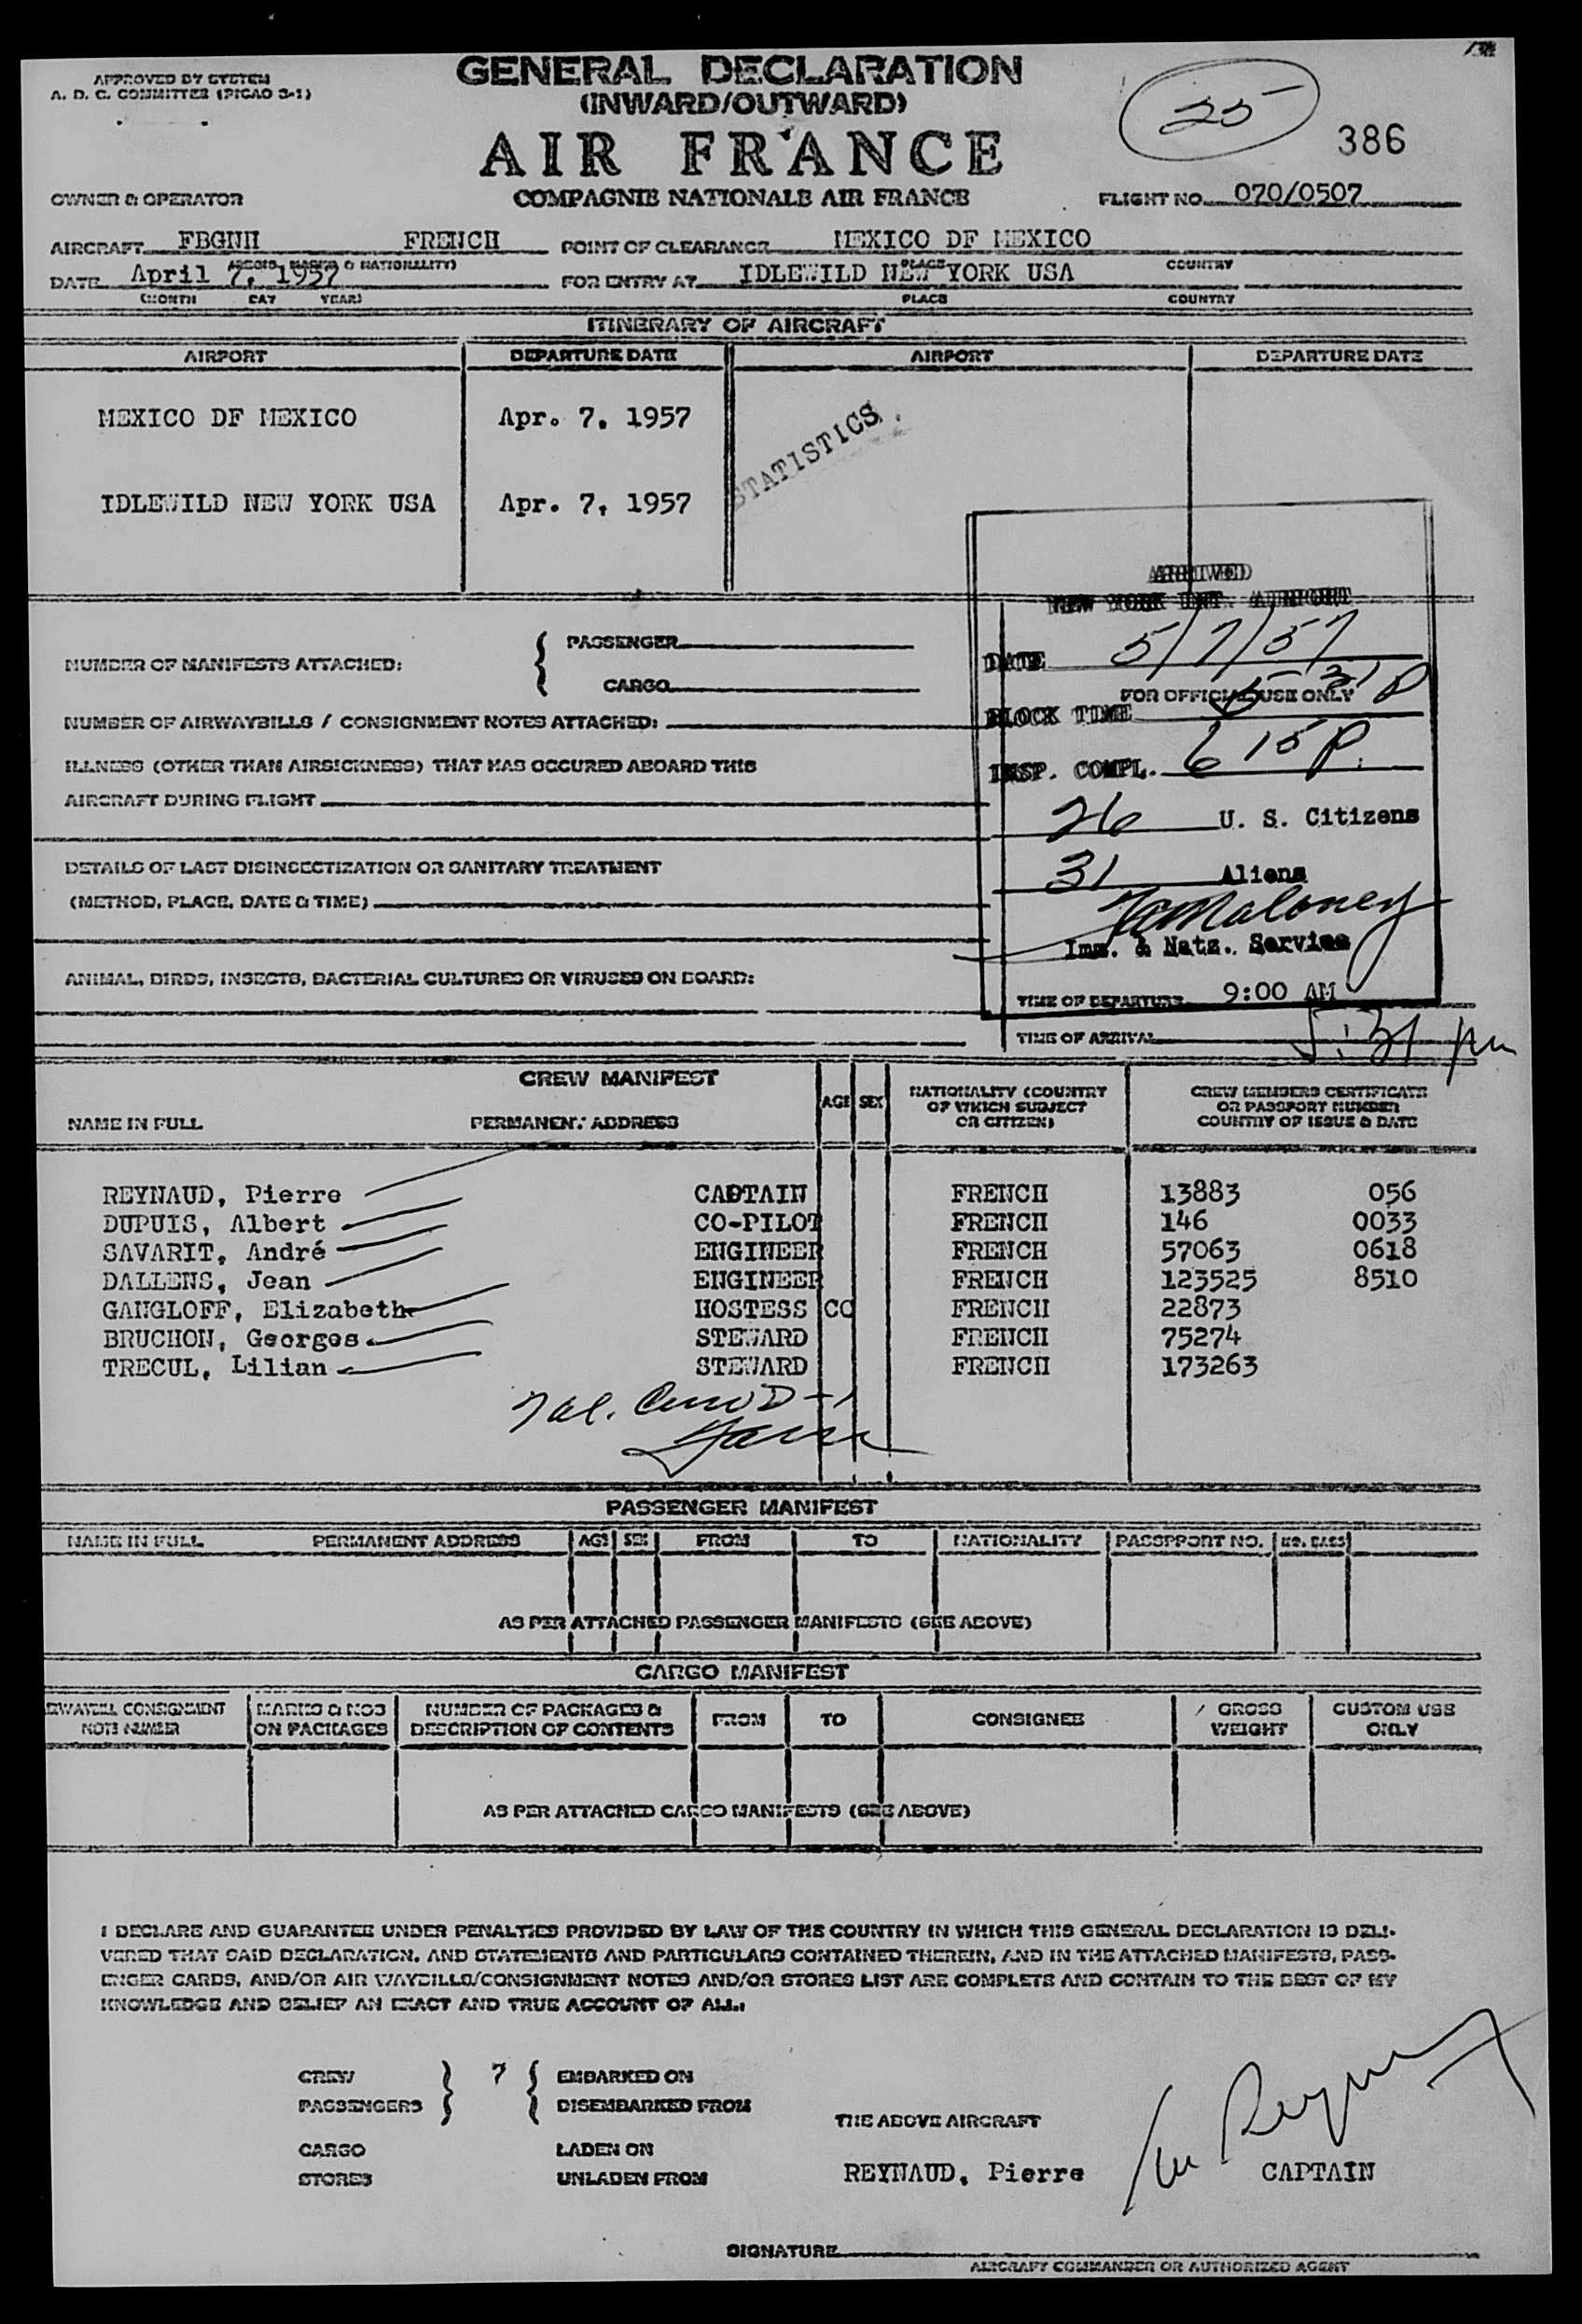 APPROVED BY SYSTEM
A. D. C. COMMITTEE (PICAO 3-1)
GENERAL DECLARATION
(INWARD/OUTWARD)
AIR FRANCE
COMPAGNIE NATIONALE AIR FRANCE
25
386
OWNER & OPERATOR
FLIGHT NO. 070/0507
AIRCRAFT FBGNH FRENCH POINT OF CLEARANCE MEXICO DF MEXICO
(REGIS. MARKS & NATIONALITY) PLACE COUNTRY
DATE April 7, 1957 FOR ENTRY AT IDLEWILD NEW YORK USA
(MONTH DAY YEAR) PLACE COUNTRY
ITINERARY OF AIRCRAFT
AIRPORT DEPARTURE DATE AIRPORT DEPARTURE DATE
MEXICO DF MEXICO Apr. 7, 1957
STATISTICS
IDLEWILD NEW YORK USA Apr. 7, 1957
ARRIVED
NEW YORK INT. AIRPORT
DATE 5/7/57
FOR OFFICIAL USE ONLY
BLOCK TIME 5 31 P
INSP. COMPL. 6 15 P.
26 U. S. Citizens
31 Aliens
Maloney
Imm. & Natz. Service
NUMBER OF MANIFESTS ATTACHED:
PASSENGER
CARGO
NUMBER OF AIRWAYBILLS / CONSIGNMENT NOTES ATTACHED:
ILLNESS (OTHER THAN AIRSICKNESS) THAT HAS OCCURED ABOARD THIS
AIRCRAFT DURING FLIGHT
DETAILS OF LAST DISINSECTIZATION OR SANITARY TREATMENT
(METHOD, PLACE, DATE & TIME)
ANIMAL, BIRDS, INSECTS, BACTERIAL CULTURES OR VIRUSES ON BOARD:
TIME OF DEPARTURE 9:00 AM
TIME OF ARRIVAL 5:31 pm
CREW MANIFEST
NAME IN FULL PERMANENT ADDRESS AGE SEX NATIONALITY (COUNTRY OF WHICH SUBJECT OR CITIZEN) CREW MEMBERS CERTIFICATE OR PASSPORT NUMBER COUNTRY OF ISSUE & DATE
REYNAUD, Pierre CAPTAIN FRENCH 13883 056
DUPUIS, Albert CO-PILOT FRENCH 146 0033
SAVARIT, André ENGINEER FRENCH 57063 0618
DALLENS, Jean ENGINEER FRENCH 123525 8510
GANGLOFF, Elizabeth HOSTESS CC FRENCH 22873
BRUCHON, Georges STEWARD FRENCH 75274
TRECUL, Lilian STEWARD FRENCH 173263
PASSENGER MANIFEST
NAME IN FULL PERMANENT ADDRESS AGE SEX FROM TO NATIONALITY PASSPPORT NO.
AS PER ATTACHED PASSENGER MANIFESTS (SEE ABOVE)
CARGO MANIFEST
CONSIGNMENT NOTE NUMBER MARKS & NOS ON PACKAGES NUMBER OF PACKAGES & DESCRIPTION OF CONTENTS FROM TO CONSIGNEE GROSS WEIGHT CUSTOM USE ONLY
AS PER ATTACHED CARGO MANIFESTS (SEE ABOVE)
I DECLARE AND GUARANTEE UNDER PENALTIES PROVIDED BY LAW OF THE COUNTRY IN WHICH THIS GENERAL DECLARATION IS DELI-
VERED THAT SAID DECLARATION, AND STATEMENTS AND PARTICULARS CONTAINED THEREIN, AND IN THE ATTACHED MANIFESTS, PASS-
ENGER CARDS, AND/OR AIR WAYBILLS/CONSIGNMENT NOTES AND/OR STORES LIST ARE COMPLETE AND CONTAIN TO THE BEST OF MY
KNOWLEDGE AND BELIEF AN EXACT AND TRUE ACCOUNT OF ALL:
CREW 7 EMBARKED ON
PASSENGERS DISEMBARKED FROM
THE ABOVE AIRCRAFT
CARGO LADEN ON
STORES UNLADEN FROM
REYNAUD, Pierre CAPTAIN
SIGNATURE
AIRCRAFT COMMANDER OR AUTHORIZED AGENT